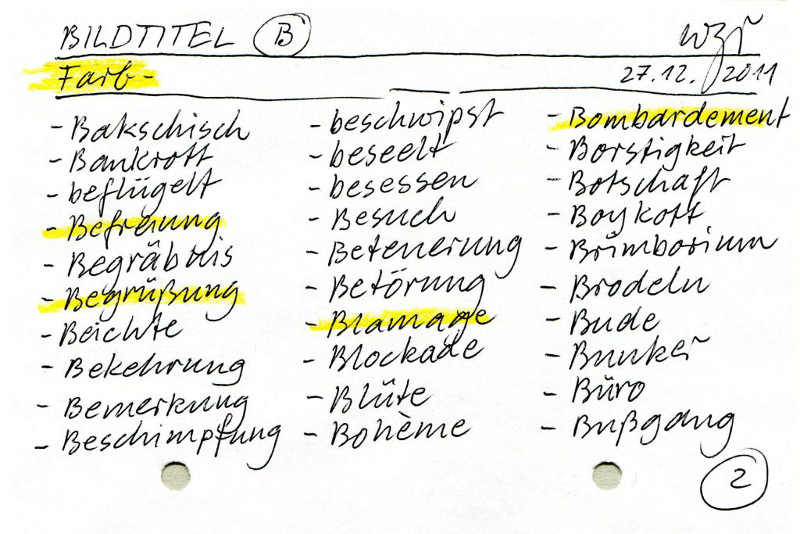 BILDTITEL B
Farb-
27.12.2011
- Bakschisch
- Bankrott
- beflügelt
- Befreiung
- Begräbnis
- Begrüßung
- Beichte
- Bekehrung
- Bemerkung
- Beschimpfung
- beschwipst
- beseelt
- besessen
- Besuch
- Beteuerung
- Betörung
- Blamage
- Blockade
- Blüte
- Bohème
- Bombardement
- Borstigkeit
- Botschaft
- Boykott
- Brimborium
- Brodeln
- Bude
- Bunker
- Büro
- Bußgang
2